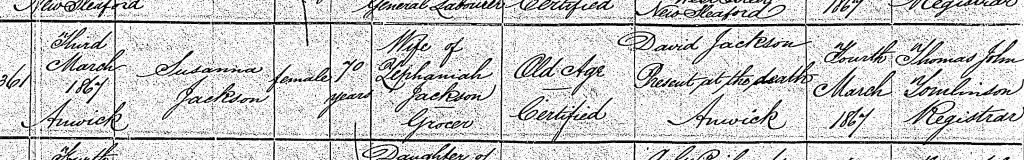 New Sleaford
General Labourer
Certified
New Sleaford
1867
Registrar
361
Third
March
1867
Anwick
Susanna
Jackson
female
70
years
Wife of
Zephaniah
Jackson
Grocer
Old Age
Certified
David Jackson
Present at the death
Anwick
Fourth
March
1867
Thomas John
Tomlinson
Registrar
Fourth
Daughter of